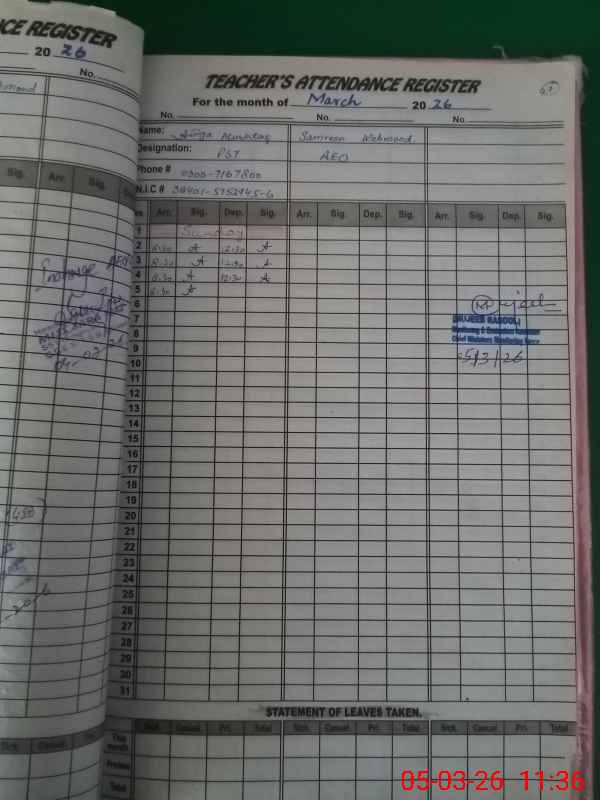 CE REGISTER
20 26
No.
TEACHER'S ATTENDANCE REGISTER
For the month of March 20 26
No. No. No.
Name: Samreen Mehmood.
Designation: PST AEO
Phone # 0300-7167800
N.I.C # 38401-5752945-6
Sig. Arr. Sig.
Arr. Sig. Dep. Sig. Arr. Sig. Dep. Sig. Arr. Sig. Dep. Sig.
1 Sunday
2 8:30 A 12:30 A
3 8:30 A 12:30 A
4 8:30 A 12:30 A
5 8:30 A
6
7
8
9
10
11
12
13
14
15
16
17
18
19
20
21
22
23
24
25
26
27
28
29
30
31
Incharge AEO
05/3/26
STATEMENT OF LEAVES TAKEN.
Sick. Casual. Pri. Total Sick. Casual. Pri. Total Sick. Casual. Pri. Total
This month
Previous
Total
Sick. Casual. Pri.
05-03-26 11:36